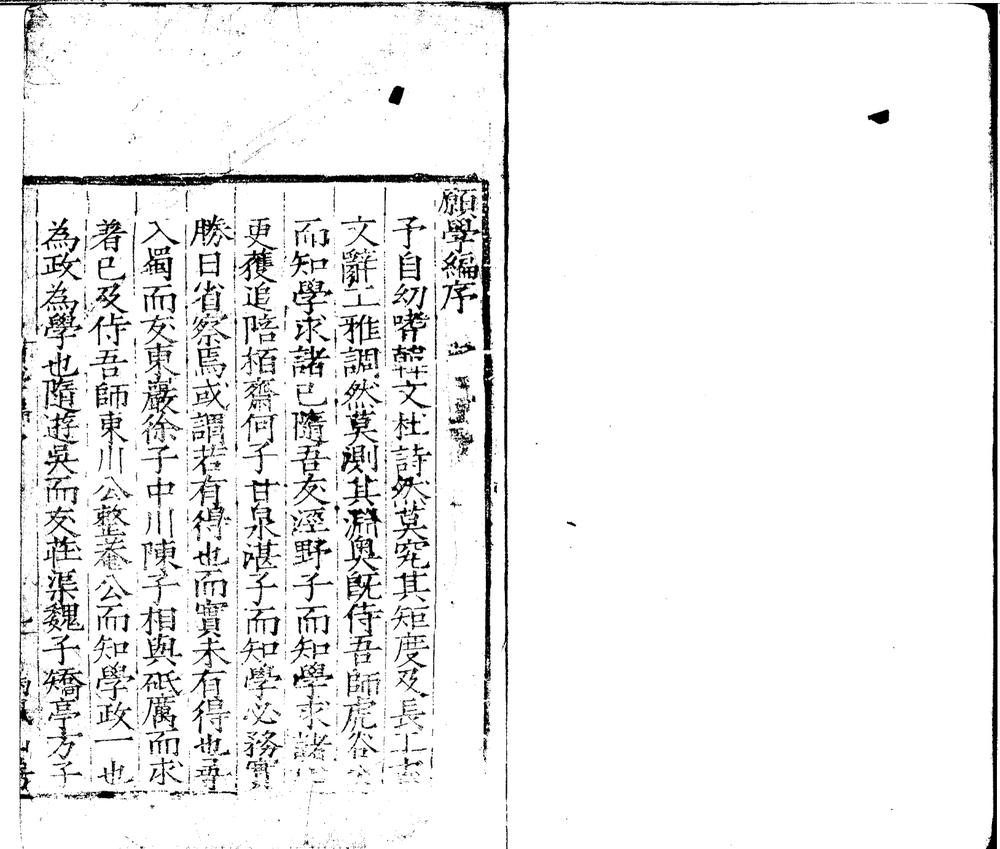 願學編序
予自幼嗜韓文杜詩然莫究其矩度及長工古
文辭工雅調然莫測其淵奧旣侍吾師虎谷公
而知學求諸己隨吾友涇野子而知學求諸
更獲追陪栢齋何子甘泉湛子而知學必務實
勝日省察焉或謂若有得也而實未有得也尋
入蜀而友東巖徐子中川陳子相與砥厲而求
著己及侍吾師東川公整菴公而知學政一也
為政為學也隨遊吳而友莊渠魏子矯亭方子